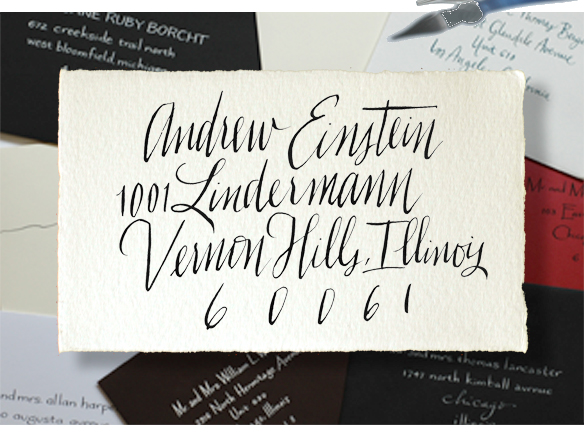 NE RUBY BORCHT
672 creekside trail north
west bloomfield michigan
Glendale Avenue
Los Angeles
Andrew Einstein
1001 Lindermann
Vernon Hills, Illinois
6 0 0 6 1
Mr. and M
Chic
and mrs. allan harp
augusta
Mr. and Mrs. William L
North Hermitage Avenue
Illinois
and mrs. thomas lancaster
1747 north kimball avenue
chicago
illi